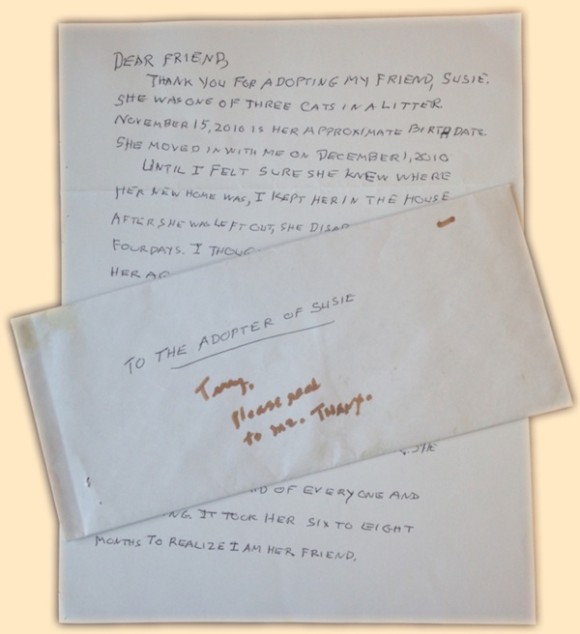 DEAR FRIEND,
THANK YOU FOR ADOPTING MY FRIEND, SUSIE.
SHE WAS ONE OF THREE CATS IN A LITTER
NOVEMBER 15, 2010 IS HER APPROXIMATE BIRTH DATE
SHE MOVED IN WITH ME ON DECEMBER 1, 2010
UNTIL I FELT SURE SHE KNEW WHERE
HER NEW HOME WAS, I KEPT HER IN THE HOUSE
AFTER SHE WAS LEFT OUT, SHE
FOUR DAYS. I
HER
TO THE ADOPTER OF SUSIE
please read
to me. Thanx.
OF EVERYONE AND
IT TOOK HER SIX TO EIGHT
MONTHS TO REALIZE I AM HER FRIEND.